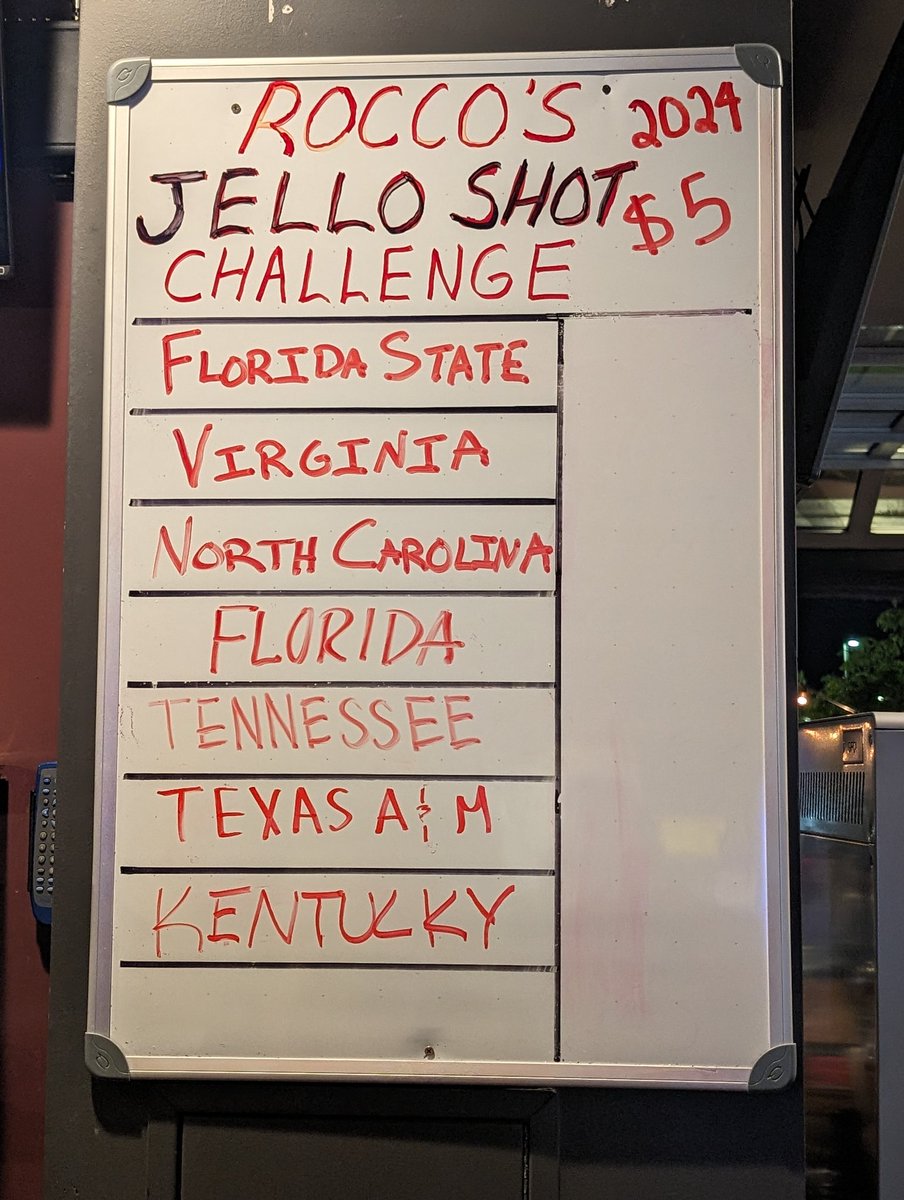 ROCCO'S 2024
JELLO SHOT $5
CHALLENGE
FLORIDA STATE
VIRGINIA
NORTH CAROLINA
FLORIDA
TENNESSEE
TEXAS A & M
KENTUCKY